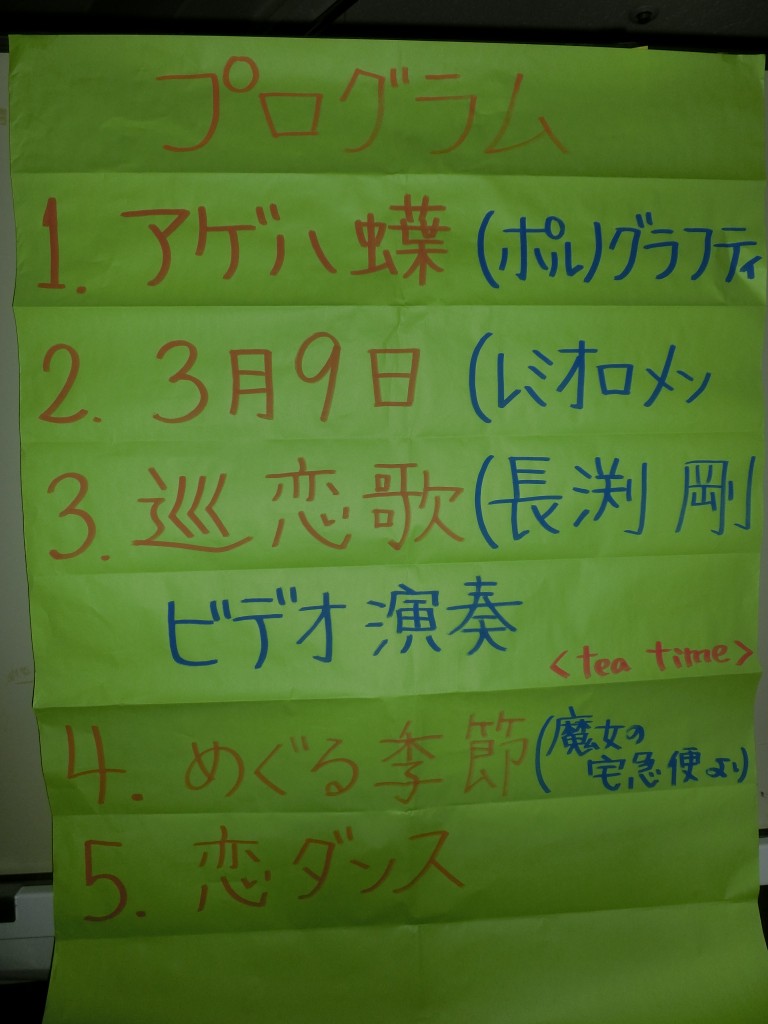 プログラム
1. アゲハ蝶 (ポルノグラフティ
2. 3月9日 (レミオロメン
3. 巡恋歌 (長渕 剛
ビデオ演奏
<tea time>
4. めぐる季節 (魔女の
宅急便より)
5. 恋ダンス